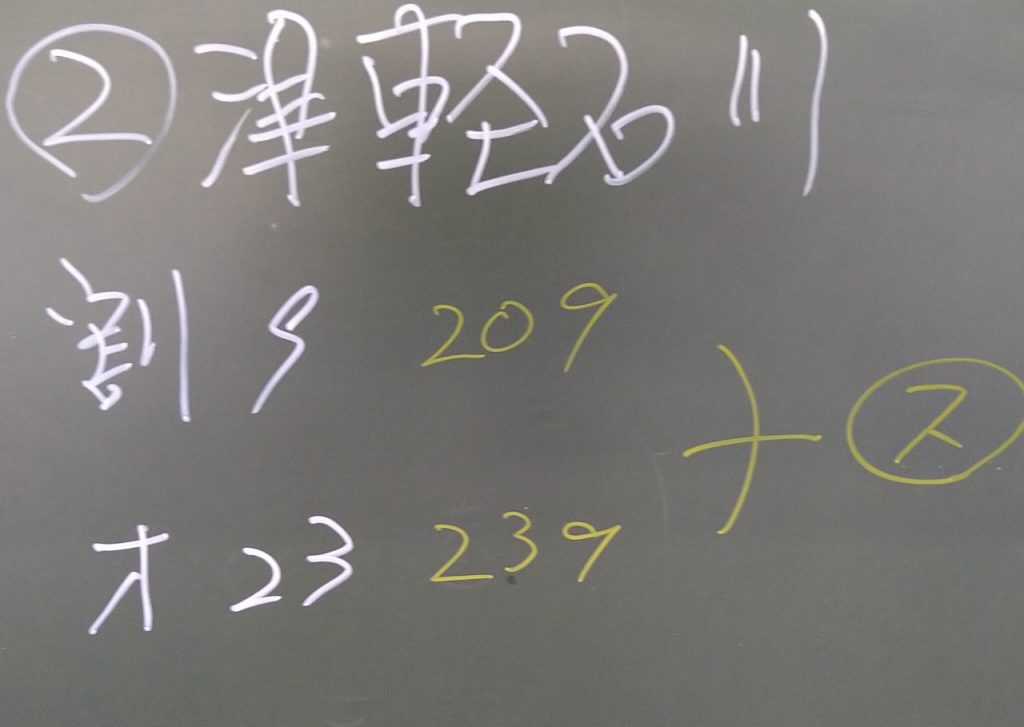 ② 津軽石川
割9 209
才23 239
ス